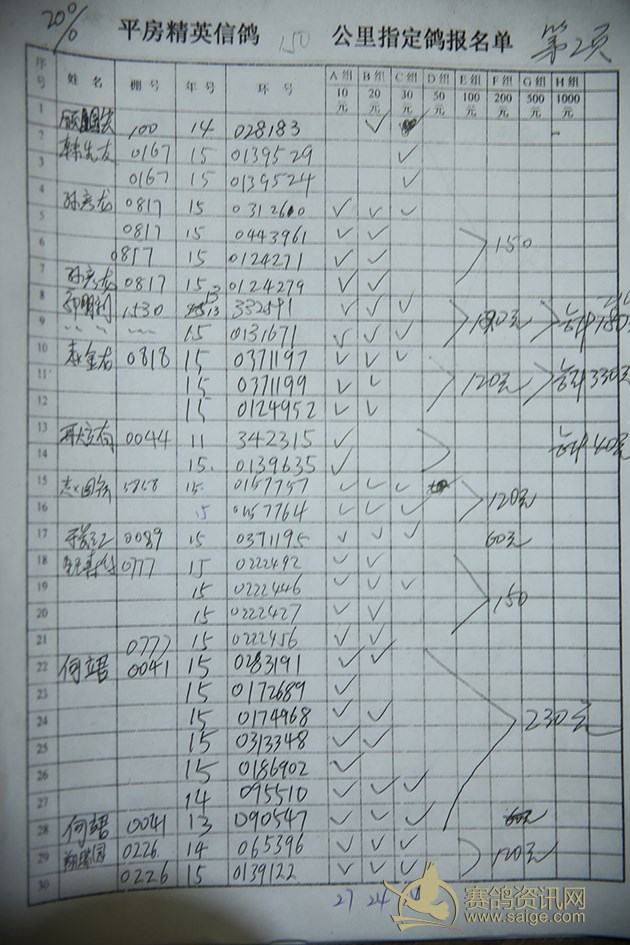 20%
平房精英信鸽 150 公里指定鸽报名单 第2页
序号 姓名 棚号 年号 环号 A组 B组 C组 D组 E组 F组 G组 H组
10元 20元 30元 50元 100元 200元 500元 1000元
1
2 100 14 028183 ✓
3 韩先友 0167 15 0139529 ✓
0167 15 0139524 ✓
4 孙彦龙 0817 15 0312600 ✓ ✓ ✓
5 0817 15 0443961 ✓ ✓ 150
6 0817 15 0124271 ✓ ✓
7 孙彦龙 0817 15 0124279 ✓ ✓
8 1530 13 332591 ✓ ✓ ✓
9 15 0131671 ✓ ✓ ✓
10 0818 15 0371197 ✓ ✓ ✓
11 15 0371199 ✓ ✓ 120元 合计330元
12 15 0124952 ✓ ✓
13 0044 11 342315 ✓ 合计40元
14 15 0139635 ✓
15 15 0157757 ✓ ✓ ✓
16 15 0157764 ✓ ✓ ✓ 120元
17 0089 15 0371195 ✓ ✓ ✓ 60元
18 0777 15 0222492 ✓ ✓
19 15 0222446 ✓ ✓ ✓ 150
20 15 0222427 ✓ ✓
21 0777 15 0222456 ✓ ✓
22 何靖 0041 15 0283191 ✓ ✓
23 15 0172689 ✓
24 15 0174968 ✓ ✓ 230元
25 15 0313348 ✓ ✓
26 15 0186902 ✓
27 14 095510 ✓ ✓ ✓
28 何靖 0041 13 090547 ✓ ✓ ✓
29 0226 14 065396 ✓ ✓ ✓ 120元
30 0226 15 0139122 ✓ ✓ ✓
27 24
赛鸽资讯网
www.saige.com